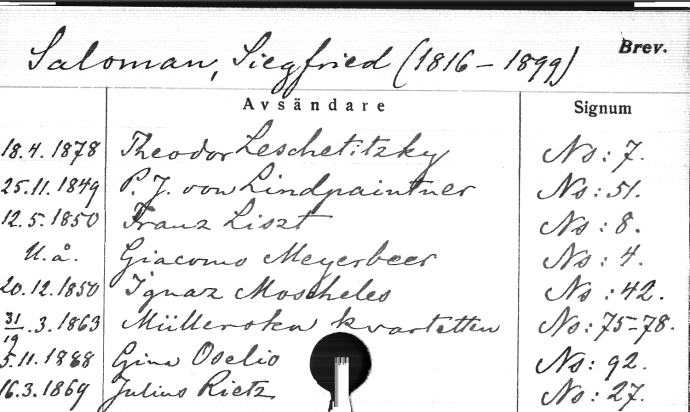 Saloman, Siegfried (1816-1899) Brev.
Avsändare Signum
18.4.1878 Theodor Leschetitzky No: 7.
25.11.1849 P. J. von Lindpaintner No: 51.
12.5.1850 Franz Liszt No: 8.
U.å. Giacomo Meyerbeer No: 4.
20.12.1850 Ignaz Moscheles No: 42.
31/19.3.1863 Müllerska kvartetten No: 75-78.
5.11.1888 Gina Oselio No: 92.
16.3.1869 Julius Rietz No: 27.